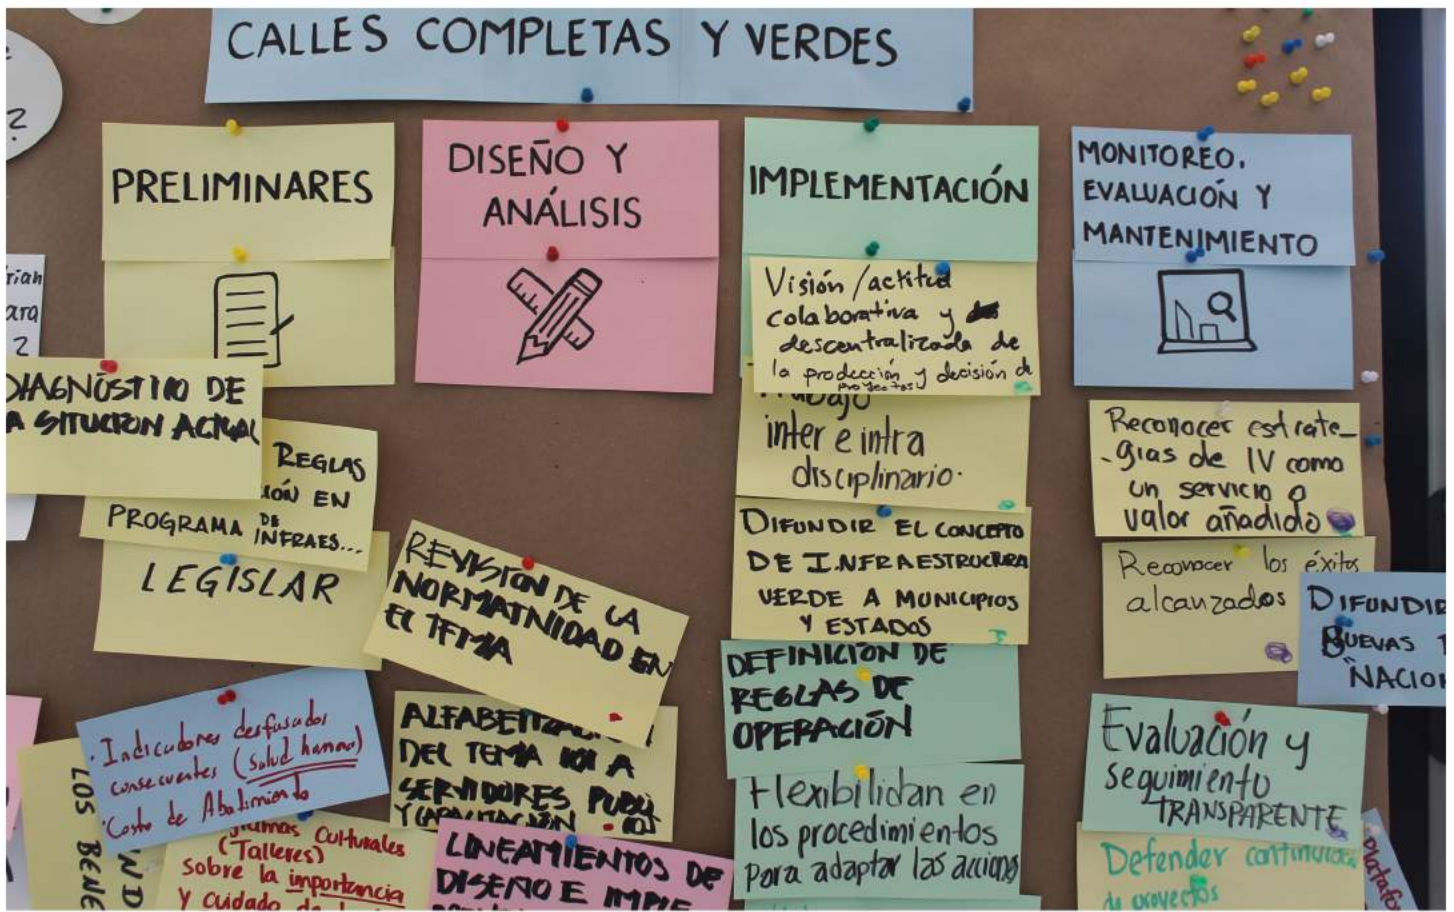 CALLES COMPLETAS Y VERDES
PRELIMINARES
DIAGNÓSTICO DE
SITUCION ACTUAL
REGLAS
EN
PROGRAMA DE
INFRAES...
LEGISLAR
· Indicadores desfasados
consecuentes (salud humana)
· Costo de Abatimiento
LOS BENE
Culturales
(Talleres)
sobre la importancia
y cuidado de
DISEÑO Y
ANÁLISIS
REVISION DE LA
NORMATIVIDAD EN
EL TEMA
DEL TEMA 101 A
SERVIDORES
Y CAPACITACIÓN
LINEAMIENTOS DE
DISEÑO E IMPLE
IMPLEMENTACIÓN
Visión/actitud
colaborativa y
descentralizada de
la producción y decisión de
proyectos
Trabajo
inter e intra
disciplinario.
DIFUNDIR EL CONCEPTO
DE INFRAESTRUCTURA
VERDE A MUNICIPIOS
Y ESTADOS
DEFINICIÓN DE
REGLAS DE
OPERACIÓN
Flexibilidan en
los procedimientos
para adaptar las acciones
MONITOREO,
EVALUACIÓN Y
MANTENIMIENTO
Reconocer estrate-
-gias de IV como
un servicio o
valor añadido
Reconocer los éxitos
alcanzados
DIFUNDIR
BUEVAS
NACIO
Evaluación y
seguimiento
TRANSPARENTE
Defender continuidad
de proyectos
Platafo